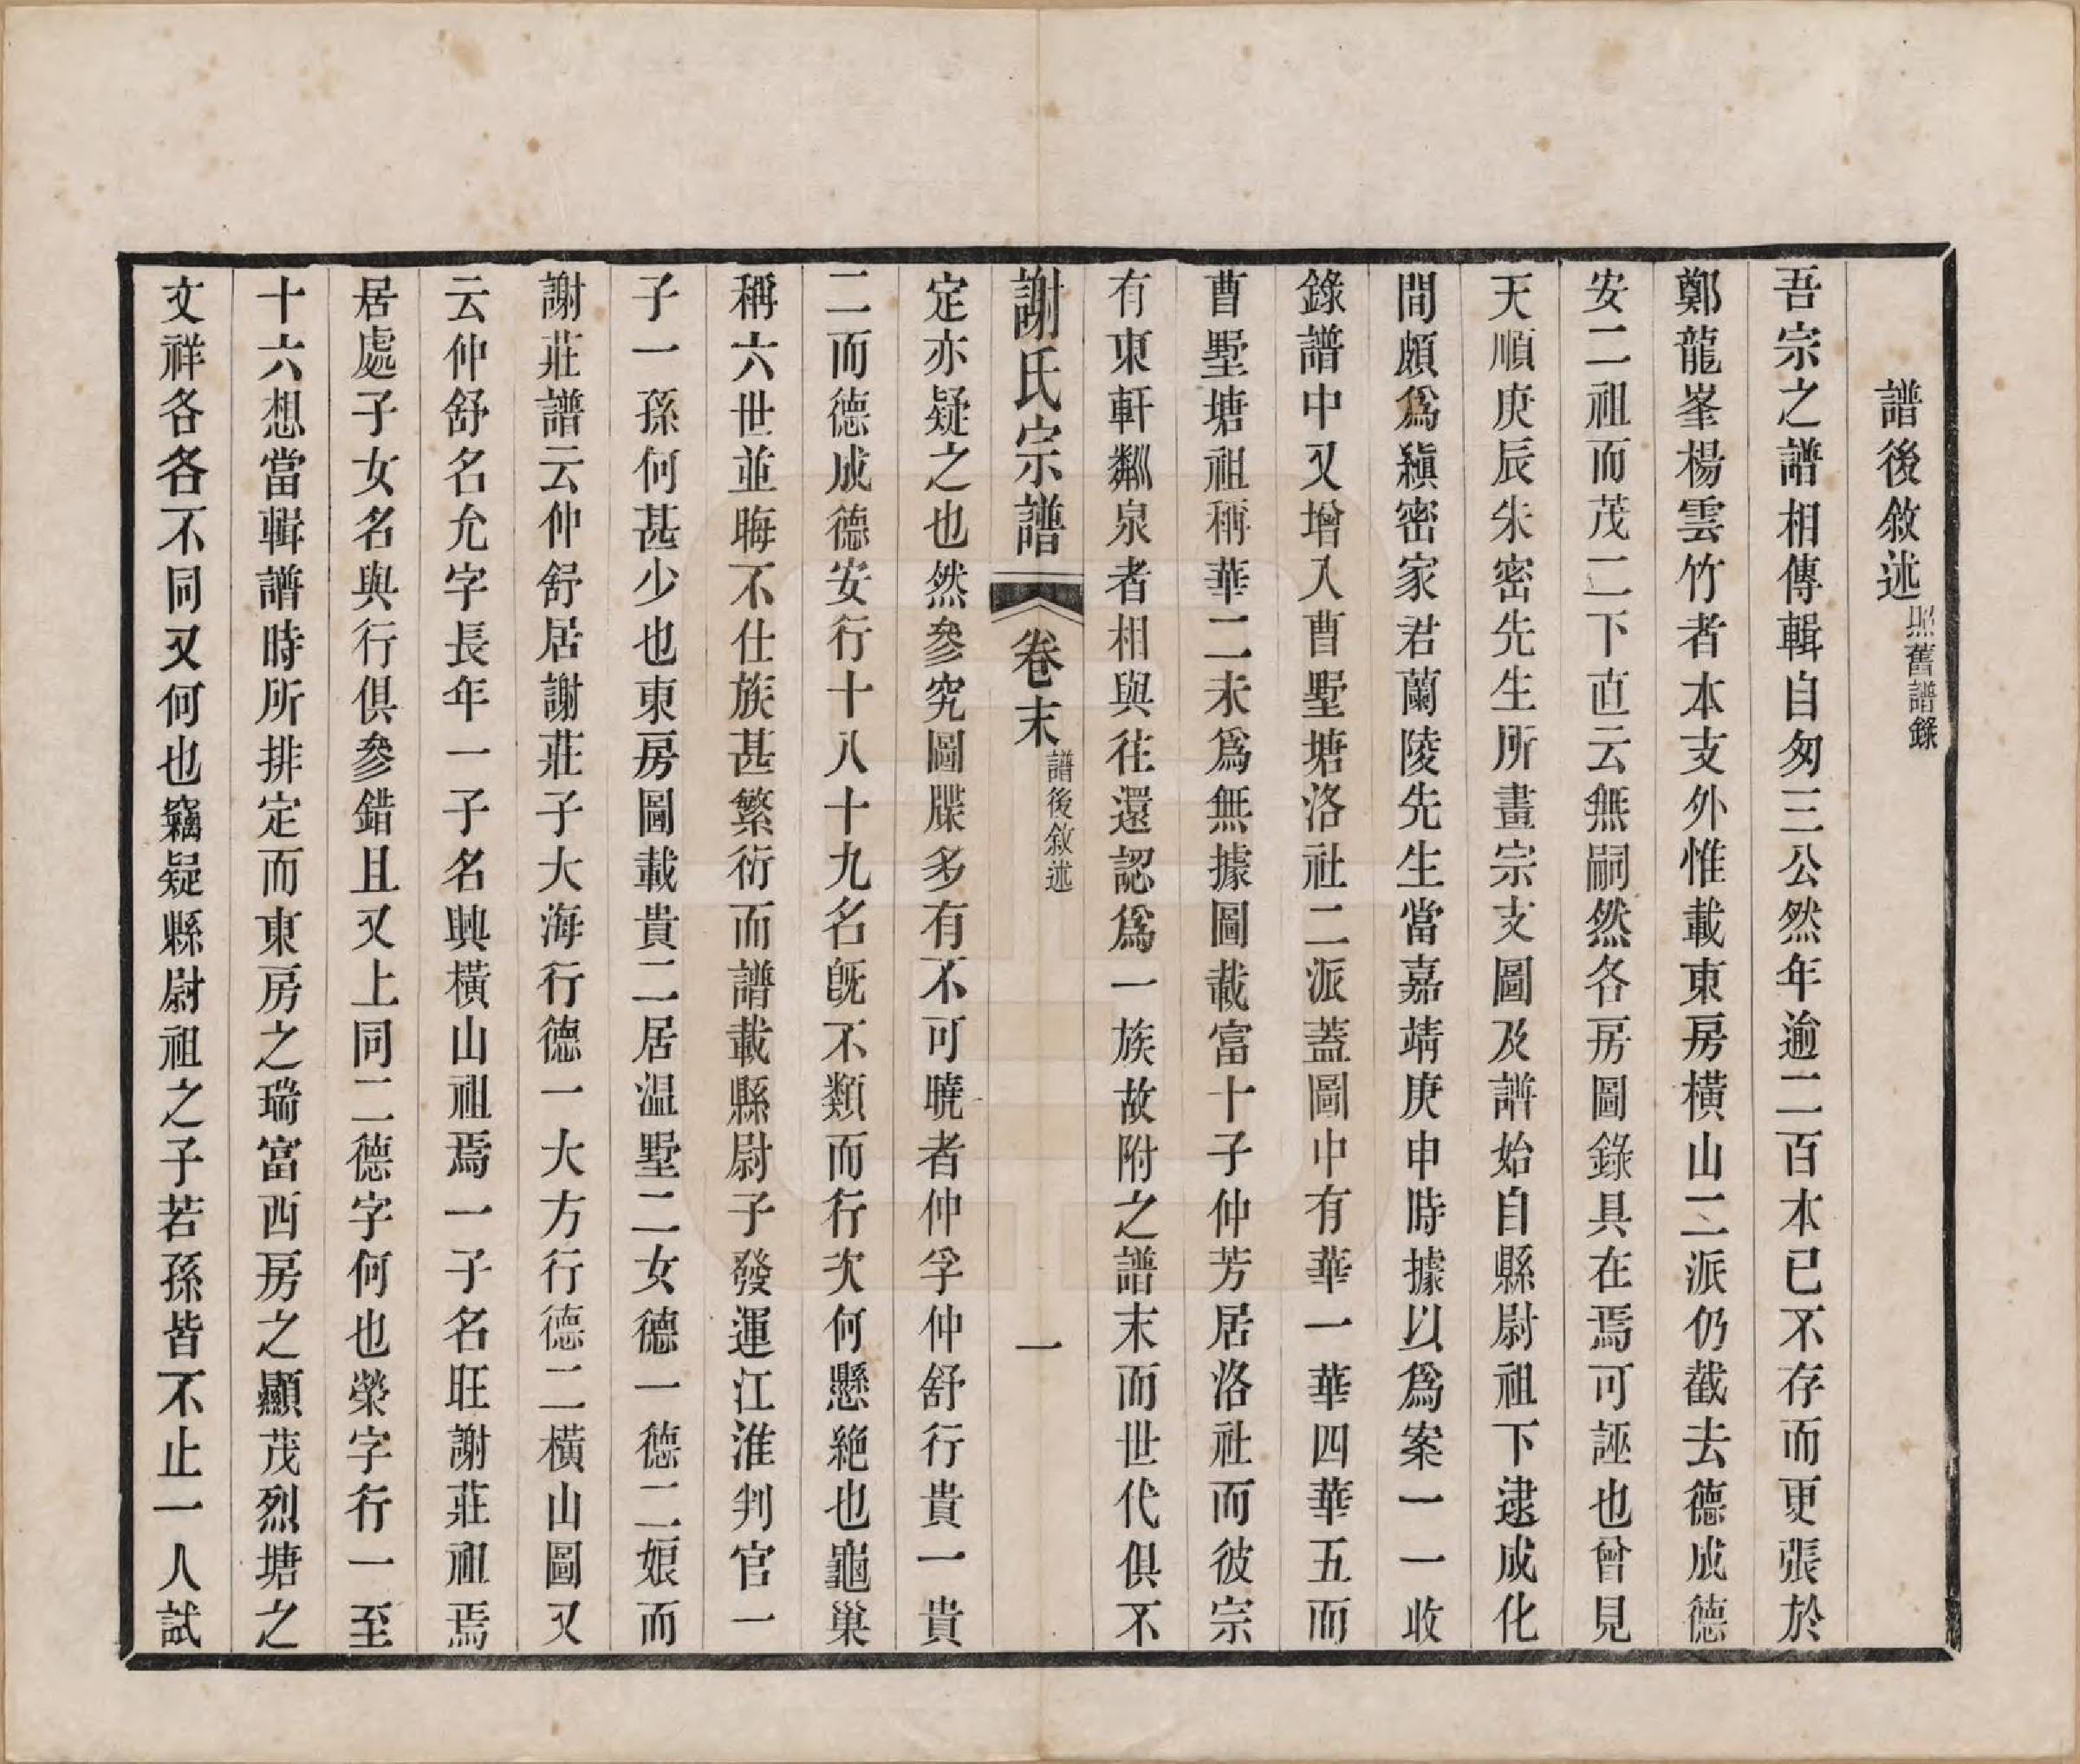 譜後敘述照舊譜錄
吾宗之譜相傳輯自匆三公然年逾二百本已不存而更張於
鄭龍峯楊雲竹者本支外惟載東房橫山二派仍截去德成德
安二祖而茂二下直云無嗣然各房圖錄具在焉可誣也曾見
天順庚辰朱密先生所畫宗支圖及譜始自縣尉祖下逮成化
間頗爲縝密家君蘭陵先生當嘉靖庚申時據以爲案一一收
錄譜中又增入曹墅塘洛社二派蓋圖中有華一華四華五而
曹墅塘祖稱華二未爲無據圖載富十子仲芳居洛社而彼宗
有東軒粼泉者相與往還認爲一族故附之譜末而世代俱不
謝氏宗譜 卷末 譜後敘述 一
定亦疑之也然參究圖牒多有不可曉者仲孚仲舒行貴一貴
二而德成德安行十八十九名既不類而行次何懸絶也龜巢
稱六世並晦不仕族甚繁衍而譜載縣尉子發運江淮判官一
子一孫何甚少也東房圖載貴二居温墅二女德一德二娘而
謝莊譜云仲舒居謝莊子大海行德一大方行德二橫山圖又
云仲舒名允字長年一子名興橫山祖焉一子名旺謝莊祖焉
居處子女名與行俱參錯且又上同二德字何也榮字行一至
十六想當輯譜時所排定而東房之瑞富西房之顯茂烈塘之
文祥各各不同又何也竊疑縣尉祖之子若孫皆不止一人試